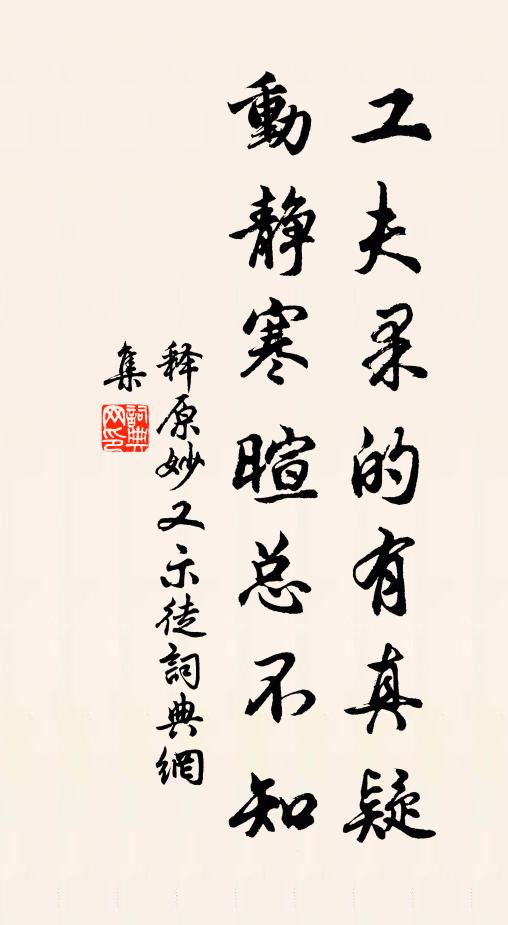 工夫果的有真疑
動静寒暄总不知
释原妙又示徒詞典網
集
詞典网印